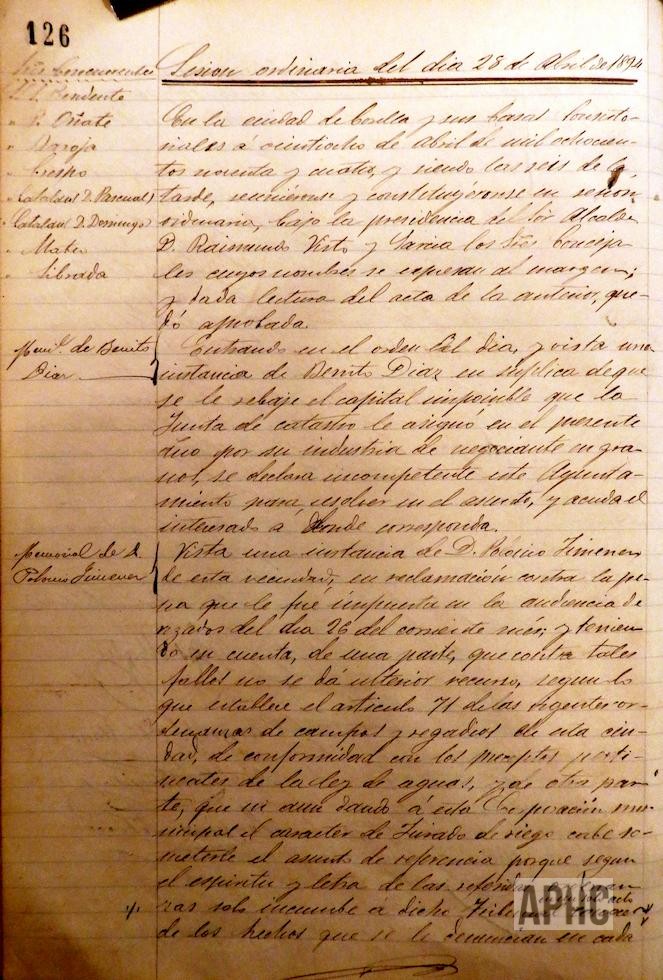 126
Sesion ordinaria del dia 28 de Abril de 1894
Sres. Concurrentes
" Oñate
" Crespo
" Catalan (D. Pascual)
Catalan (D. Domingo)
" Mateo
" Librada
En la ciudad de Corella y sus casas Consisto-
riales á veintiocho de Abril de mil ochocien-
tos noventa y cuatro, y siendo las seis de la
tarde, reuniéronse y constituyéronse en sesion
ordinaria, bajo la presidencia del Sór Alcalde
D. Raimundo Virto y Garcia los Sres Conceja-
les cuyos nombres se expresan al margen;
y dada lectura del acta de la anterior, que-
dó aprobada.
Meml. de Benito
Diaz
Entrando en el orden del dia, y vista una
instancia de Benito Diaz en suplica de que
se le rebaje el capital imponible que la
Junta de catastro le asignó en el presente
año por su industria de negociante en gra-
nos, se declara incompetente este Ayunta-
miento para resolver en el asunto, y acuda el
interesado a donde corresponda.
Memorial de D.
Jimenez
Vista una instancia de D. Jimenez
de esta vecindad, en reclamacion contra la pe-
na que le fué impuesta en la audiencia de
rezados del dia 26 del corriente més; y tenien-
do en cuenta, de una parte, que contra tales
fallos no se dá ulterior recurso, segun lo
que establece el articulo 71 de las vigentes or-
denanzas de campos y regadios de esta ciu-
dad, de conformidad con los preceptos perti-
nentes de la ley de aguas, y de otra par-
te, que ni aun dando á esta Corporación mu-
nicipal el caracter de Jurado de riego cabe so-
meterle el asunto de referencia porque segun
el espiritu y letra de las referidas Ordenan-
zas solo incumbe á dicho Tribunal
en un solo acto
de los hechos que se le denuncian en cada
APHC